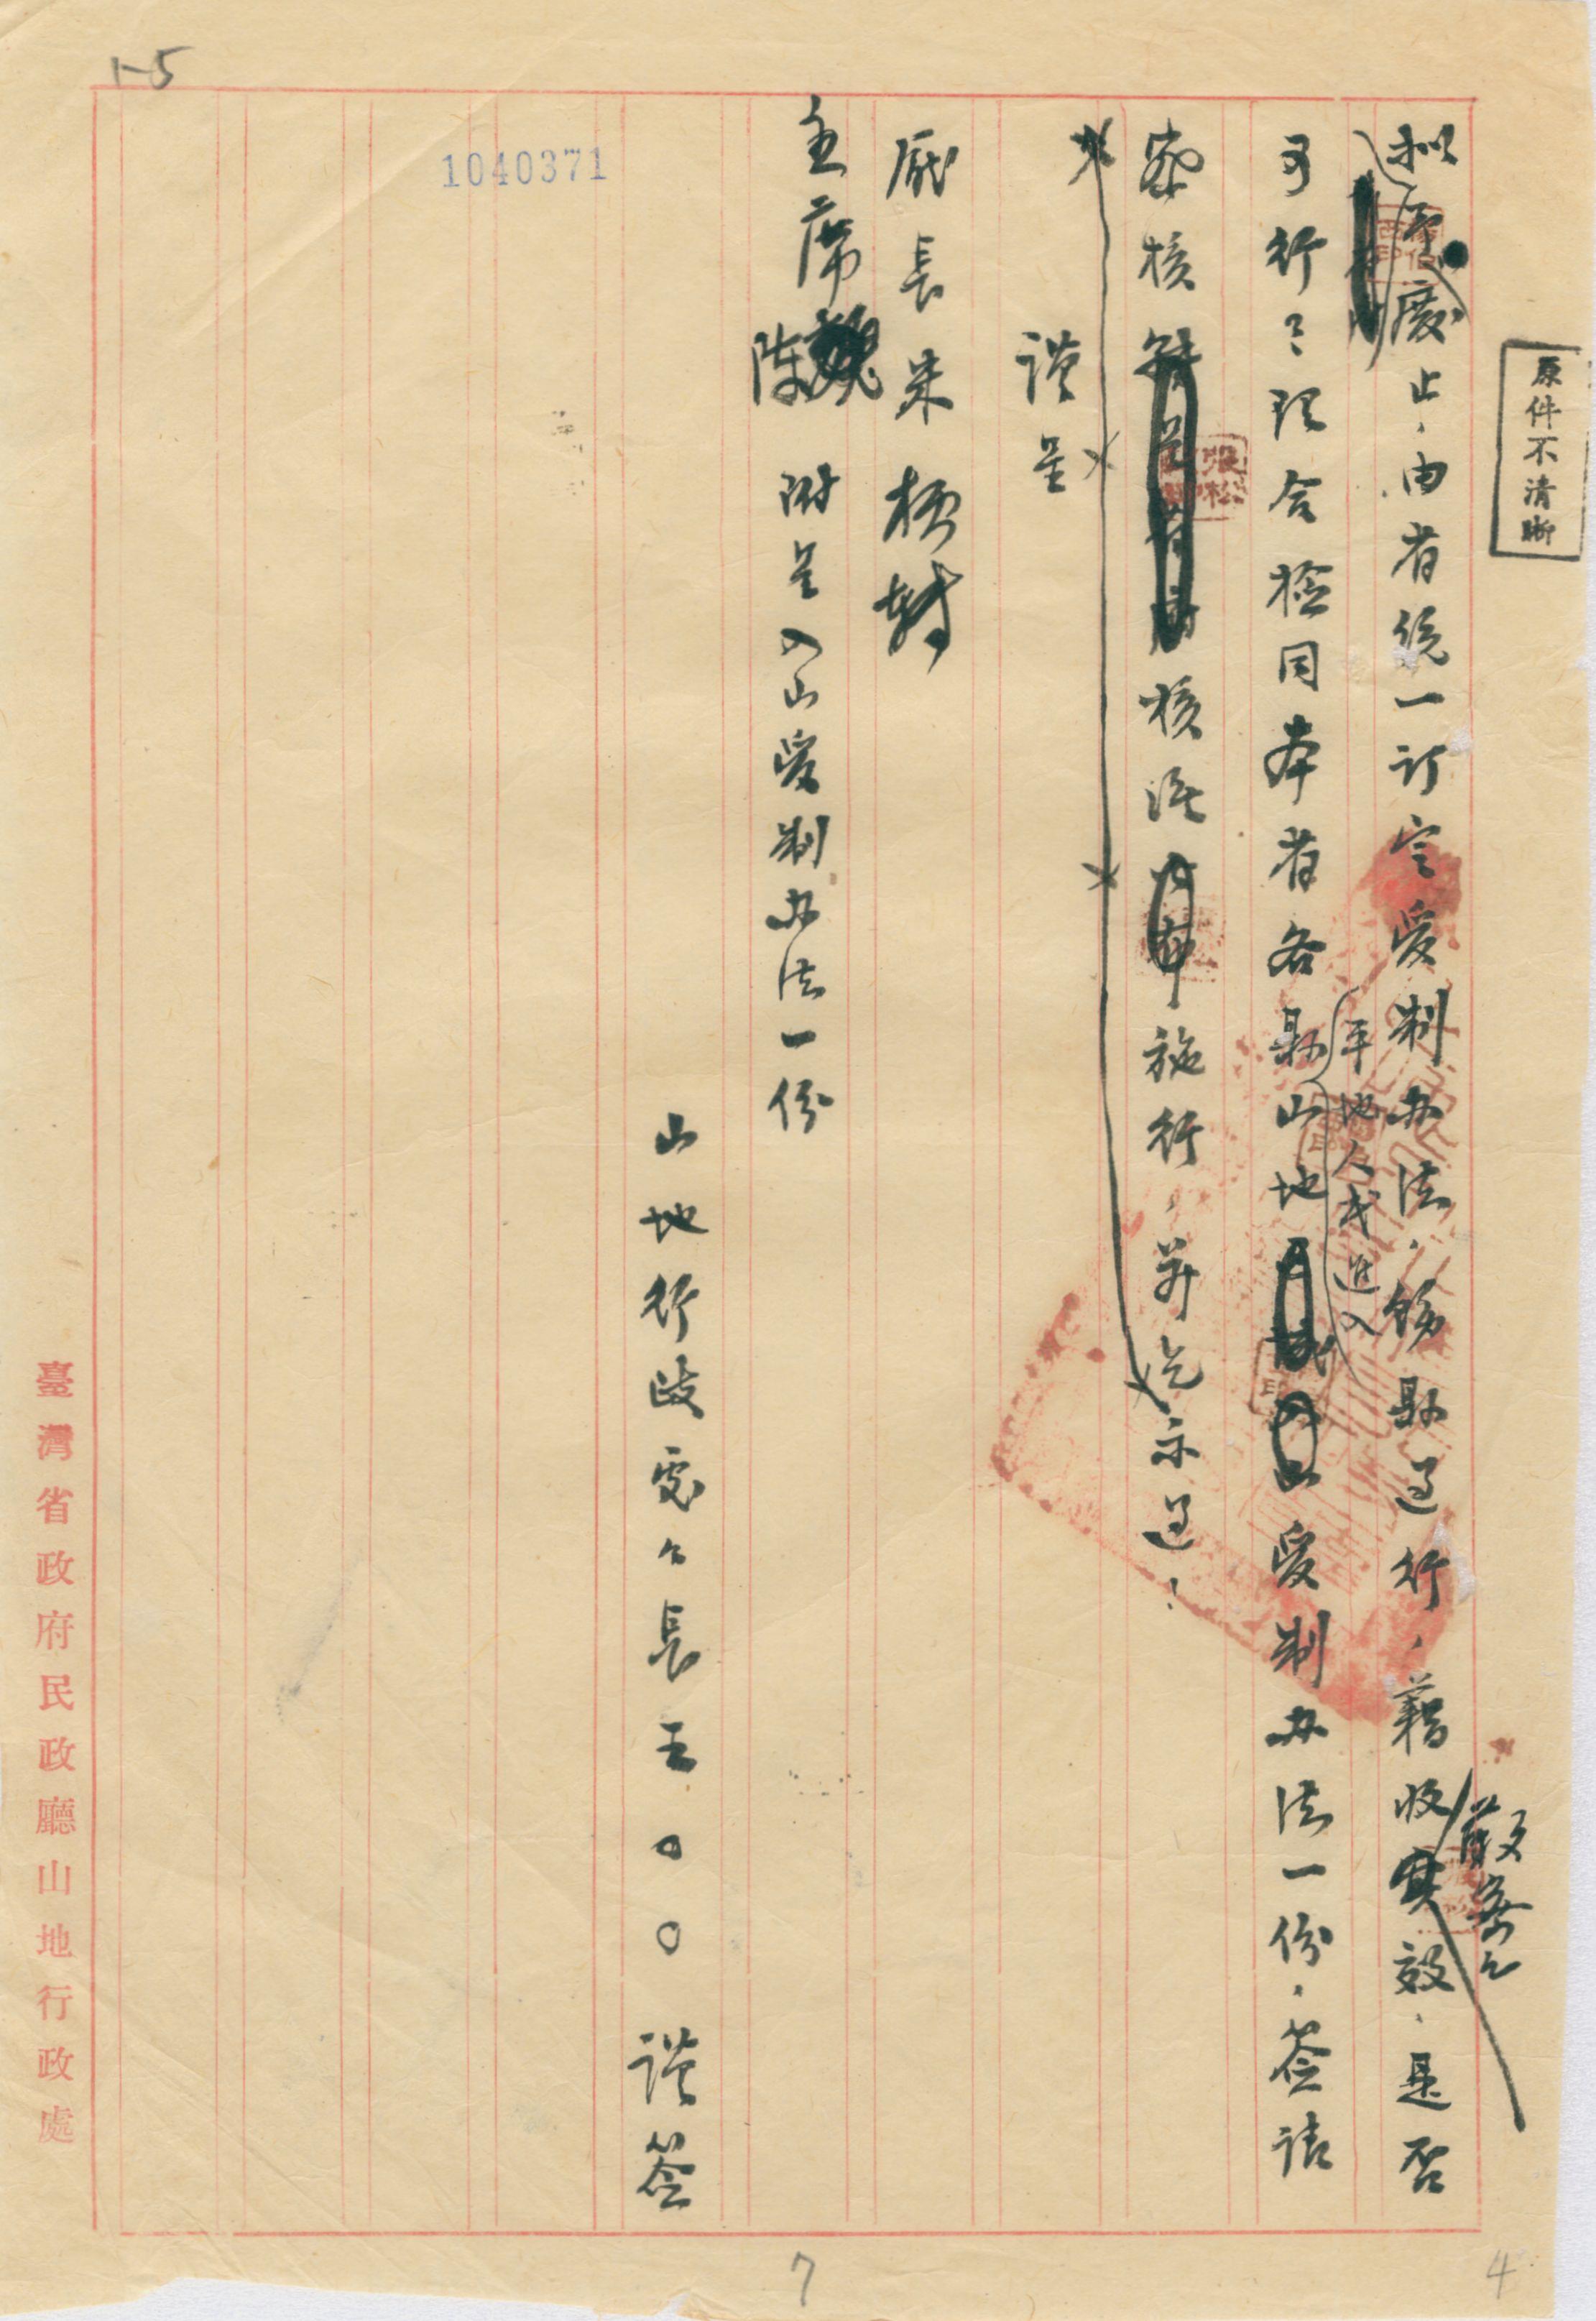 原件不清晰
擬予廢止，由省統一訂定管制办法，飭縣遵行，藉收效，是否
嚴密之
平地人民進入
可行？理合檢同本省各縣山地管制办法一份，签請
察核核准施行，并乞示遵！
謹呈
廳長朱 核轉
主席陳 附呈入山管制办法一份
山地行政處处長王〇〇 謹签
1040371
1-5
臺灣省政府民政廳山地行政處
7
4